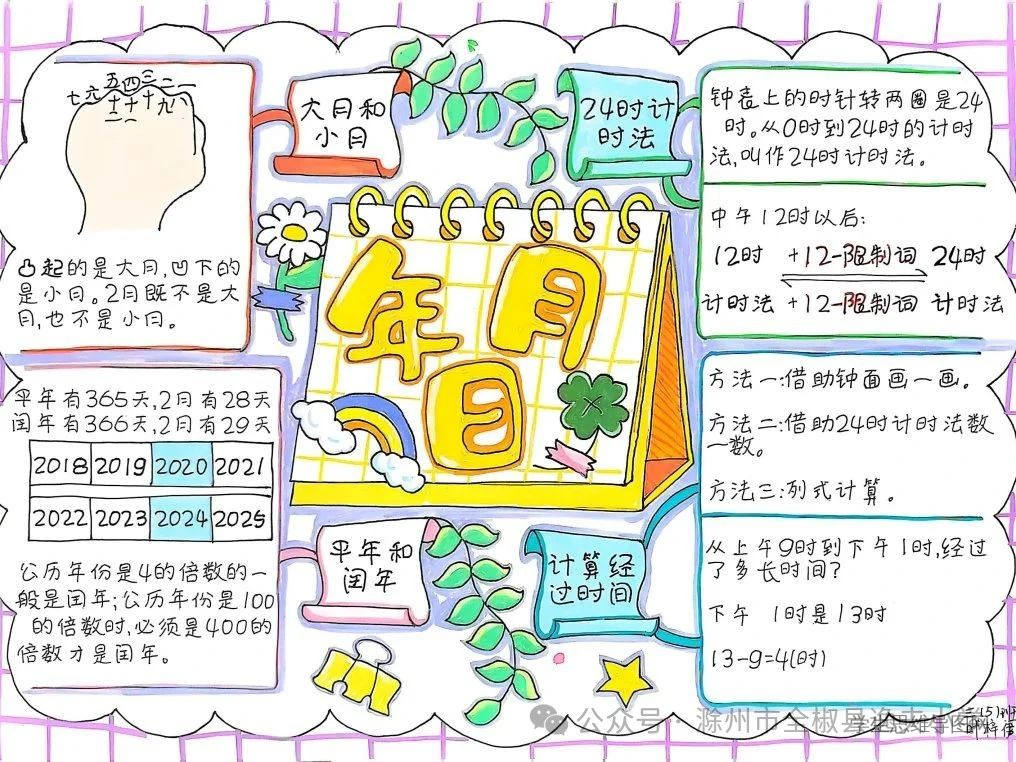 大月和
小月
七六五四三二一
十二十一十九八
凸起的是大月,凹下的
是小月。2月既不是大
月,也不是小月。
年月
日
24时计
时法
钟表上的时针转两圈是24
时。从0时到24时的计时
法,叫作24时计时法。
中午12时以后:
12时 +12-限制词 24时
计时法 +12-限制词 计时法
平年和
闰年
平年有365天,2月有28天
闰年有366天,2月有29天
2018 2019 2020 2021
2022 2023 2024 2025
公历年份是4的倍数的一
般是闰年;公历年份是100
的倍数时,必须是400的
倍数才是闰年。
计算经
过时间
方法一:借助钟面画一画。
方法二:借助24时计时法数
一数。
方法三:列式计算。
从上午9时到下午1时,经过
了多长时间?
下午 1时是13时
13-9=4(时)
公众号·滁州市全椒县